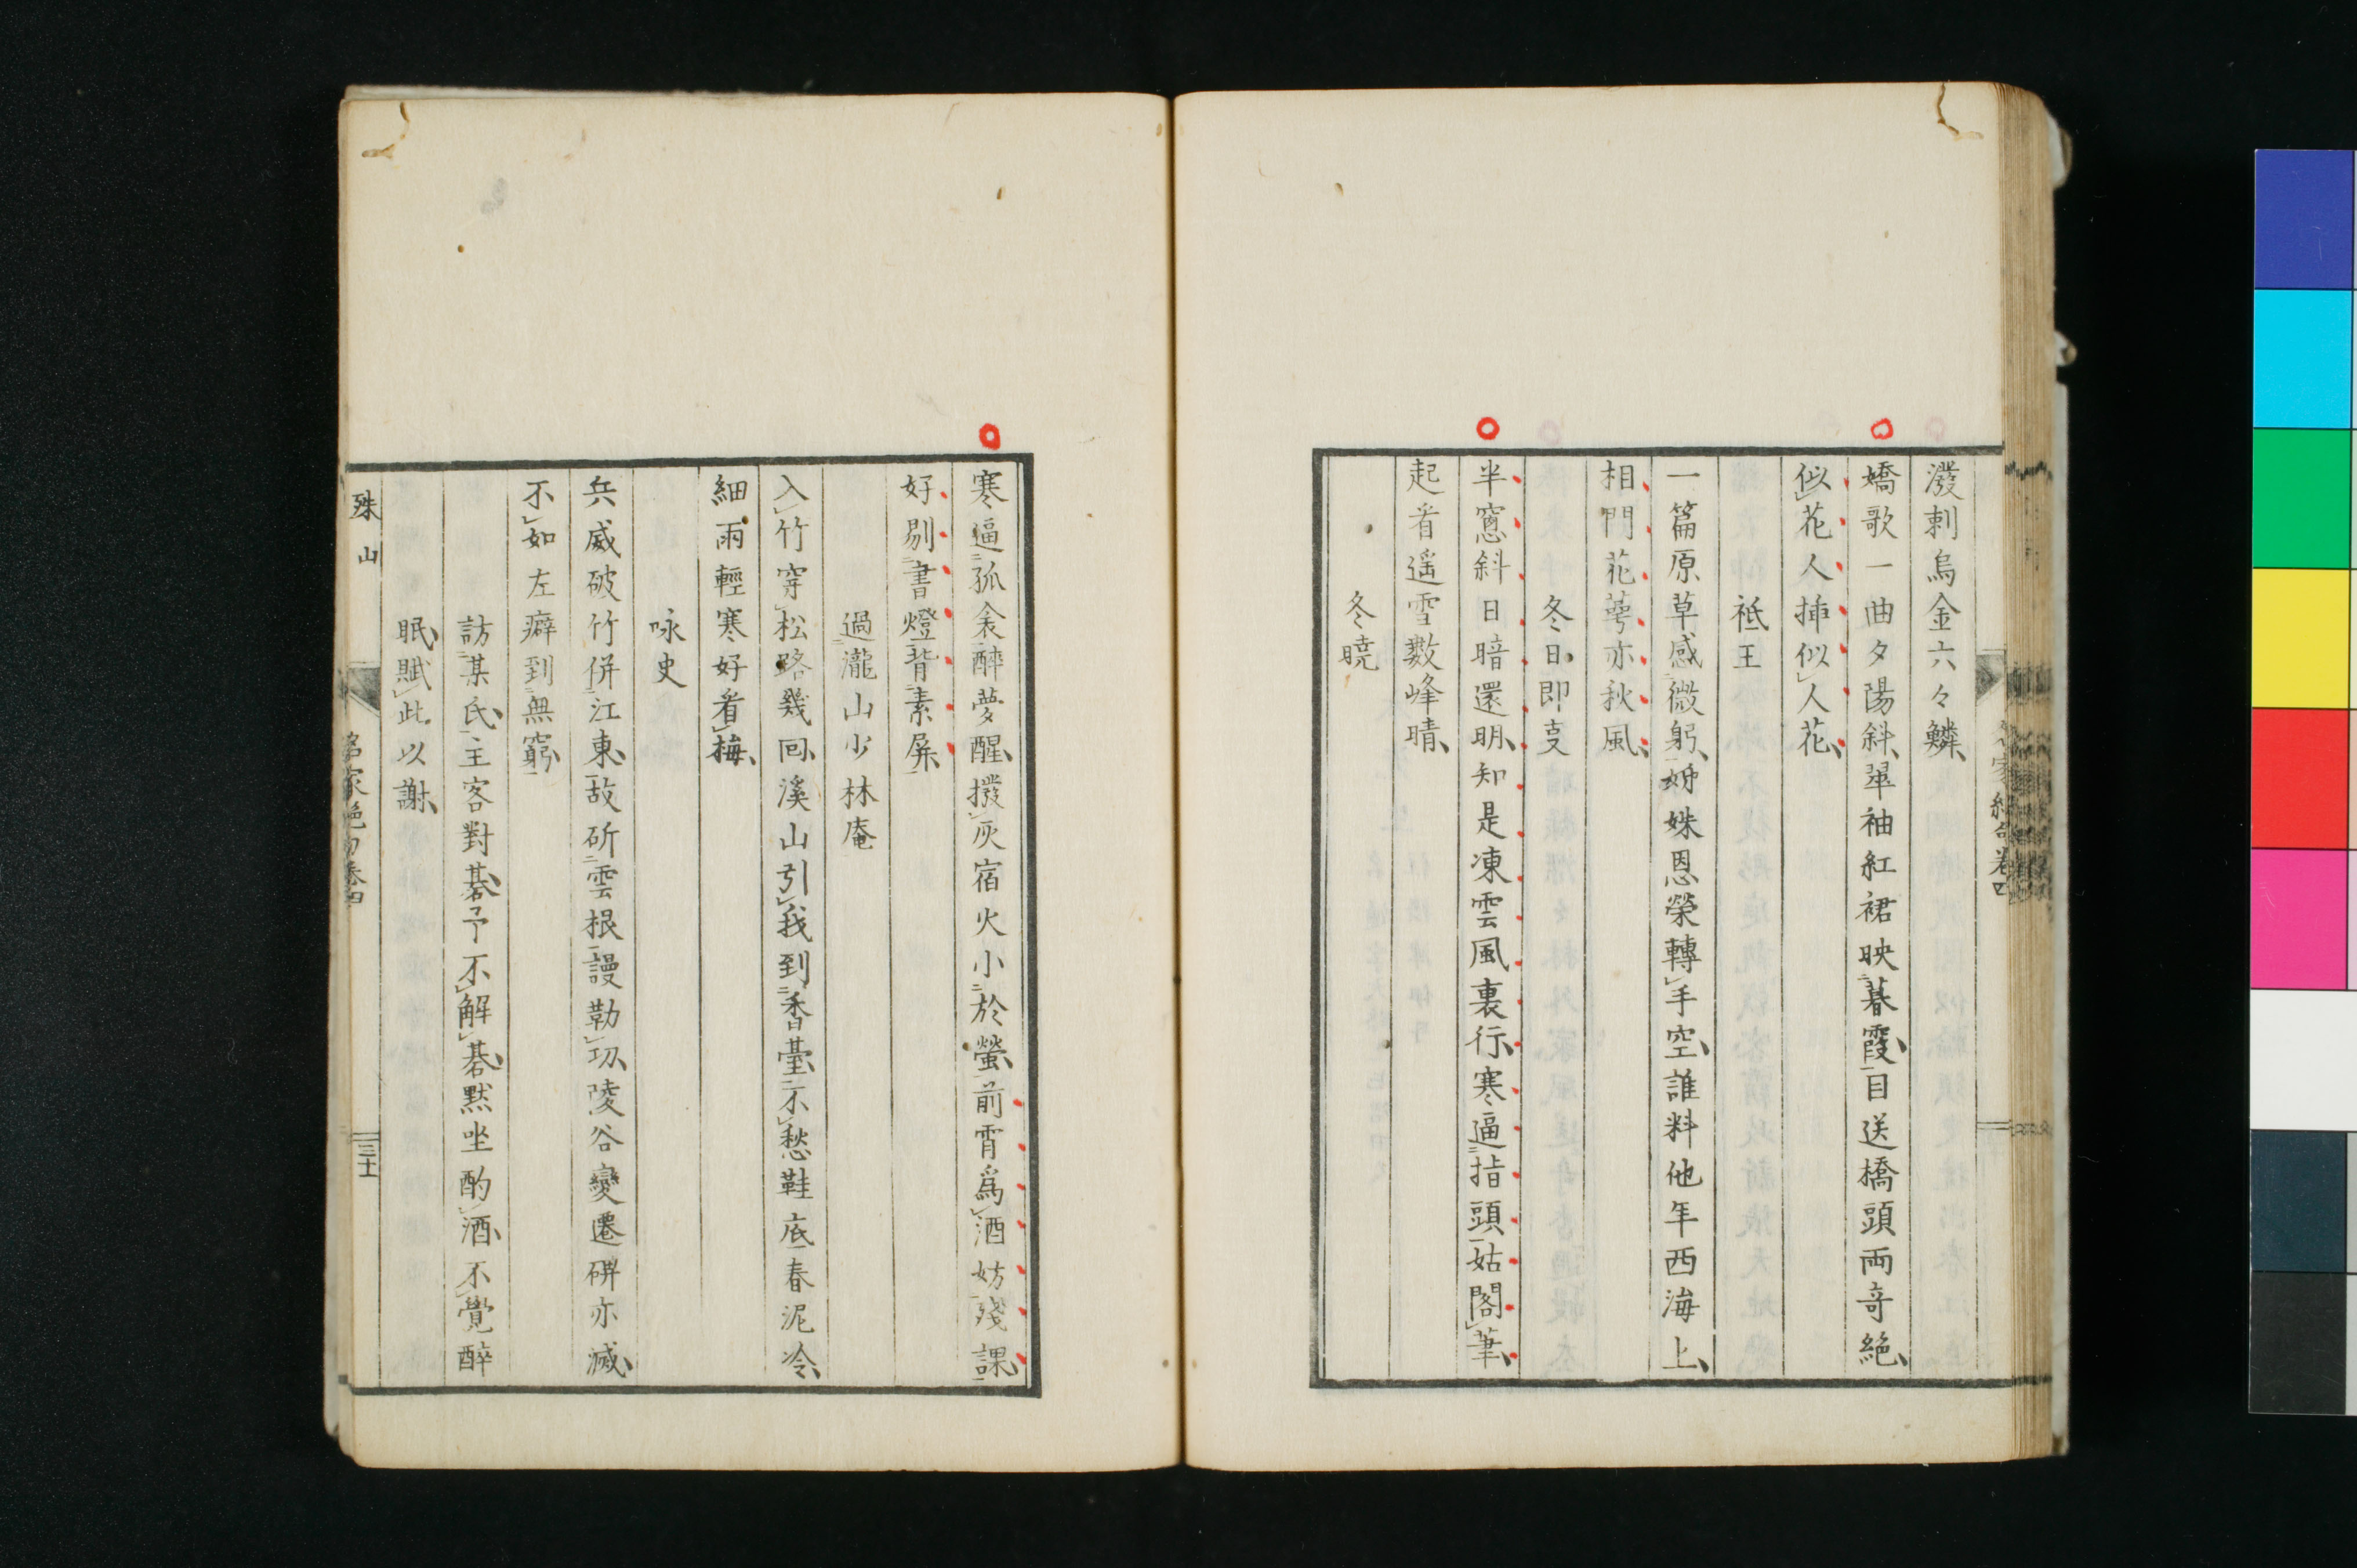 潑剌烏金六々鱗
嬌歌一曲夕陽斜翠袖紅裙映暮霞目送橋頭両奇絶
似花人挿似人花
祇王
一篇原草感微躬姉妹恩榮轉手空誰料他年西海上
相門花萼亦秋風
冬日即支
半窓斜日暗還明知是凍雲風裏行寒逼指頭姑閣筆
起看遥雪數峰晴
冬暁
寒逼孤衾醉夢醒撥灰宿火小於螢前宵爲酒妨殘課
好剔書燈背素屏
過瀧山少林庵
入竹穿松路幾回溪山引我到香臺不愁鞋底春泥冷
細雨輕寒好看梅
咏史
兵威破竹併江東故斫雲根謾勒功陵谷變遷碑亦滅
不如左癖到無窮
訪某氏主客對碁予不解碁黙坐酌酒不覺醉
眠賦此以謝
殊山
名家絶句卷四